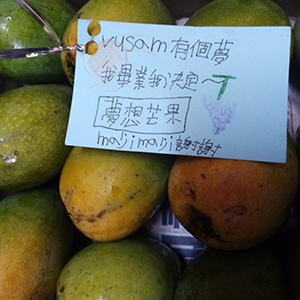 vusam有個夢
我畢業我決定~T
夢想芒果
majimaji謝謝